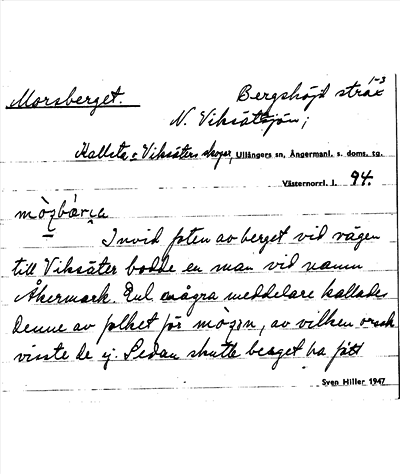 Morsberget.
Bergshöjd strax
1-3
N. Viksätsjön;
Kallsta o Viksäters skogar, Ullångers sn, Ångermanl. s. doms. tg.
Västernorrl. l. 94.
Invid foten av berget vid vägen
till Viksäter bodde en man vid namn
Åkermark. Enl. några meddelare kallades
denne av folket för mòṣạn, av vilken orsak
visste de ej. Sedan skulle berget ha fått
Sven Hiller 1947